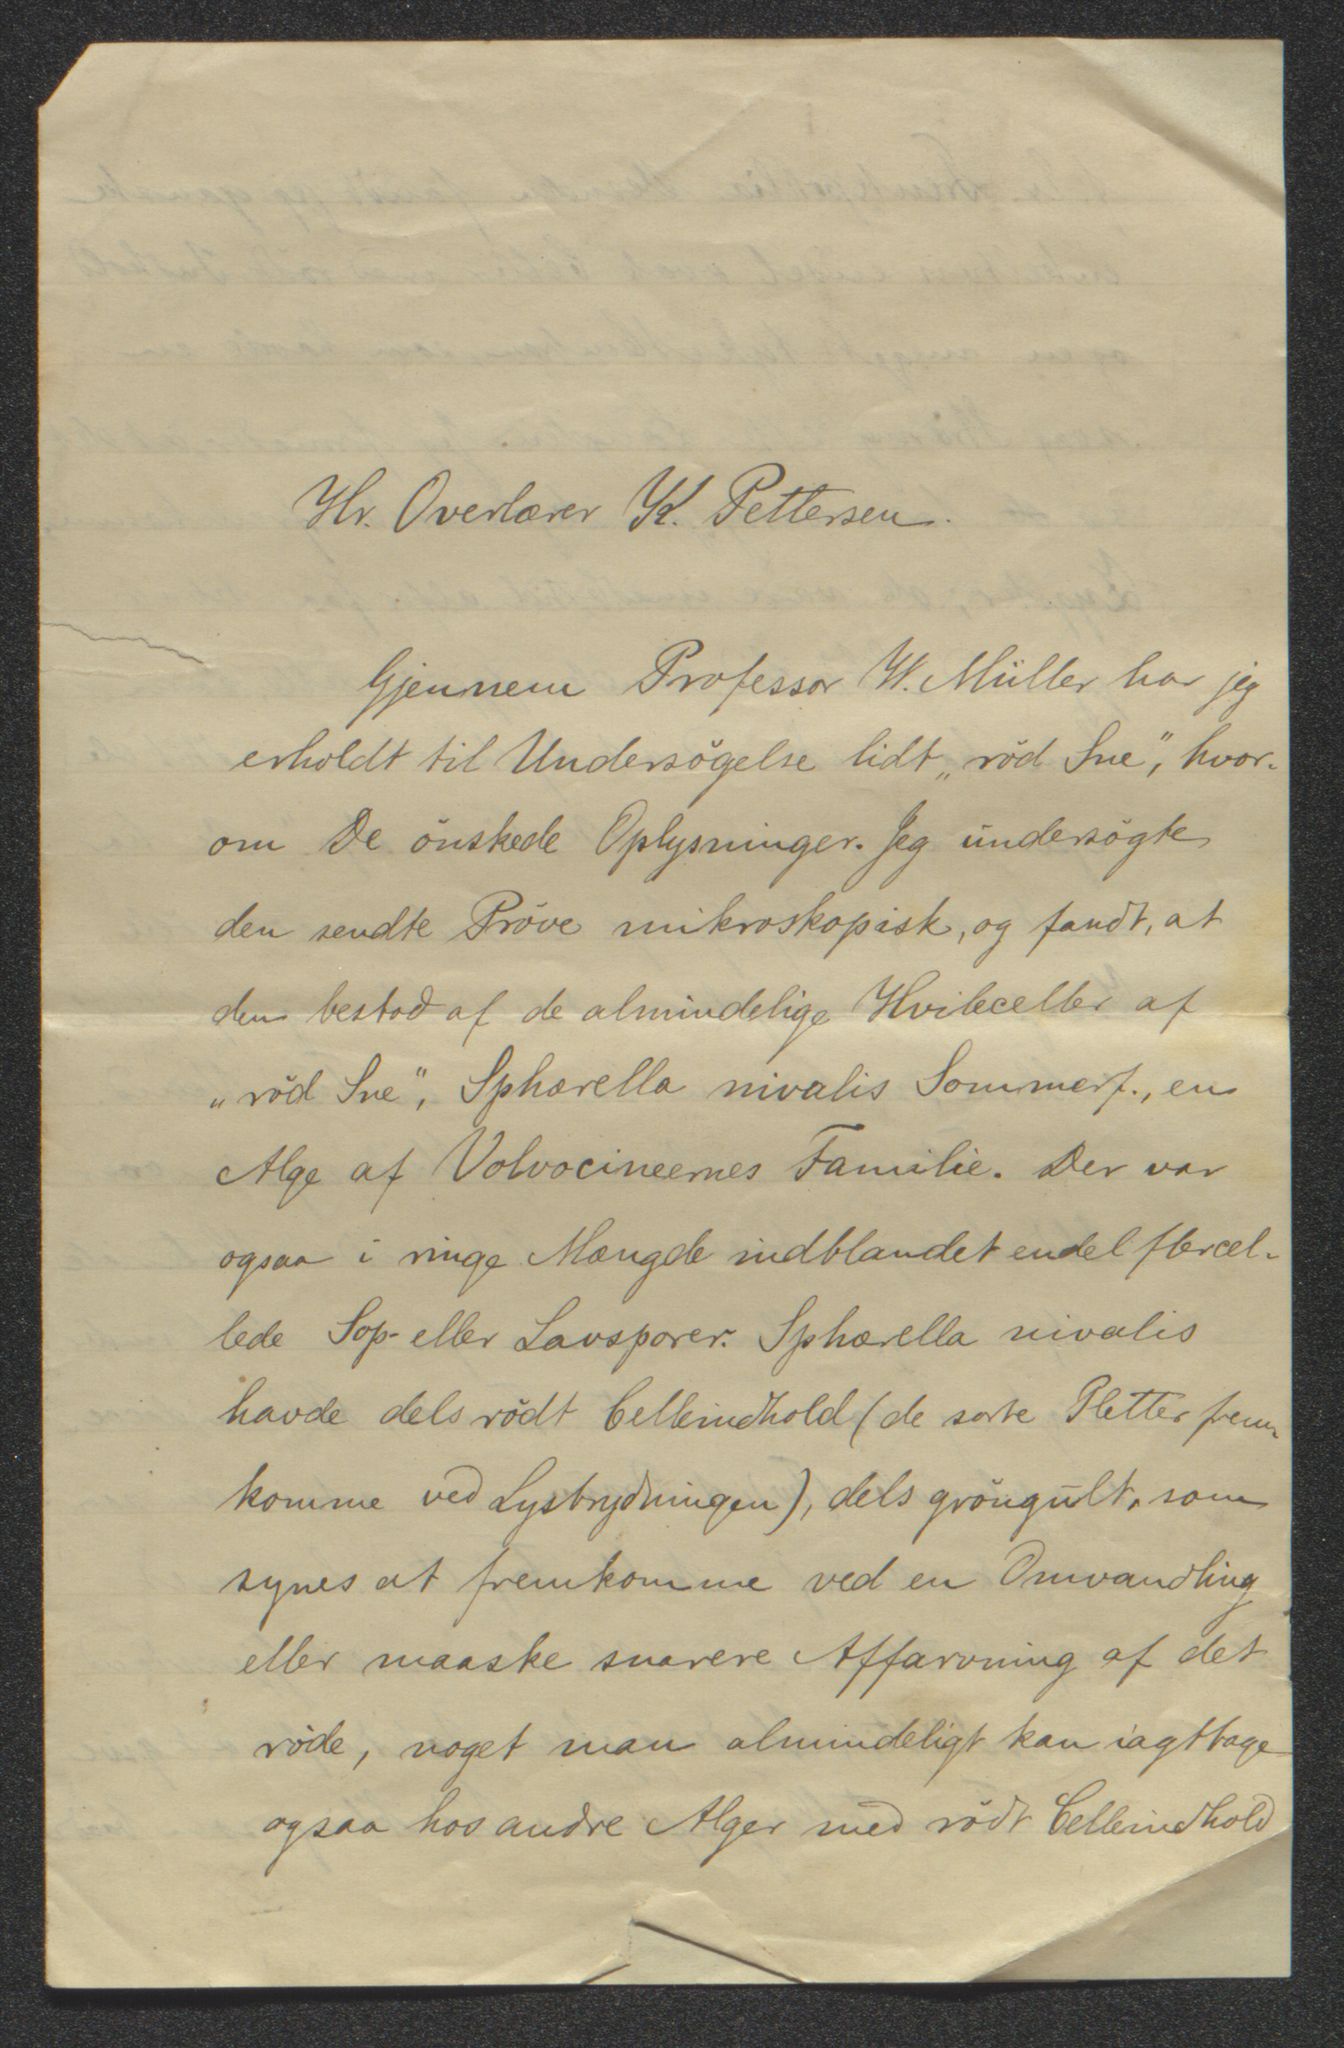 Hr. Overlærer K. Pettersen.
Gjennem Professor W. Müller har jeg
erholdt til Undersögelse lidt „röd Sne", hvor-
om De önskede Oplysninger. Jeg undersögte
den sendte Pröve mikroskopisk, og fandt, at
den bestod af de almindelige Hvileceller af
„röd Sne", Sphærella nivalis Sommerf., en
Alge af Volvocineernes Familie. Der var
ogsaa i ringe Mængde indblandet endel flercel-
lede Sop- eller Lavsporer. Sphærella nivalis
havde dels rödt Celleindhold (de sorte Pletter frem-
komme ved Lysbrydningen), dels gröngult, som
synes at fremkomme ved en Omvandling
eller maaske snarere Affarvning af det
röde, noget man almindeligt kan iagttage
ogsaa hos andre Alger med rödt Celleindhold